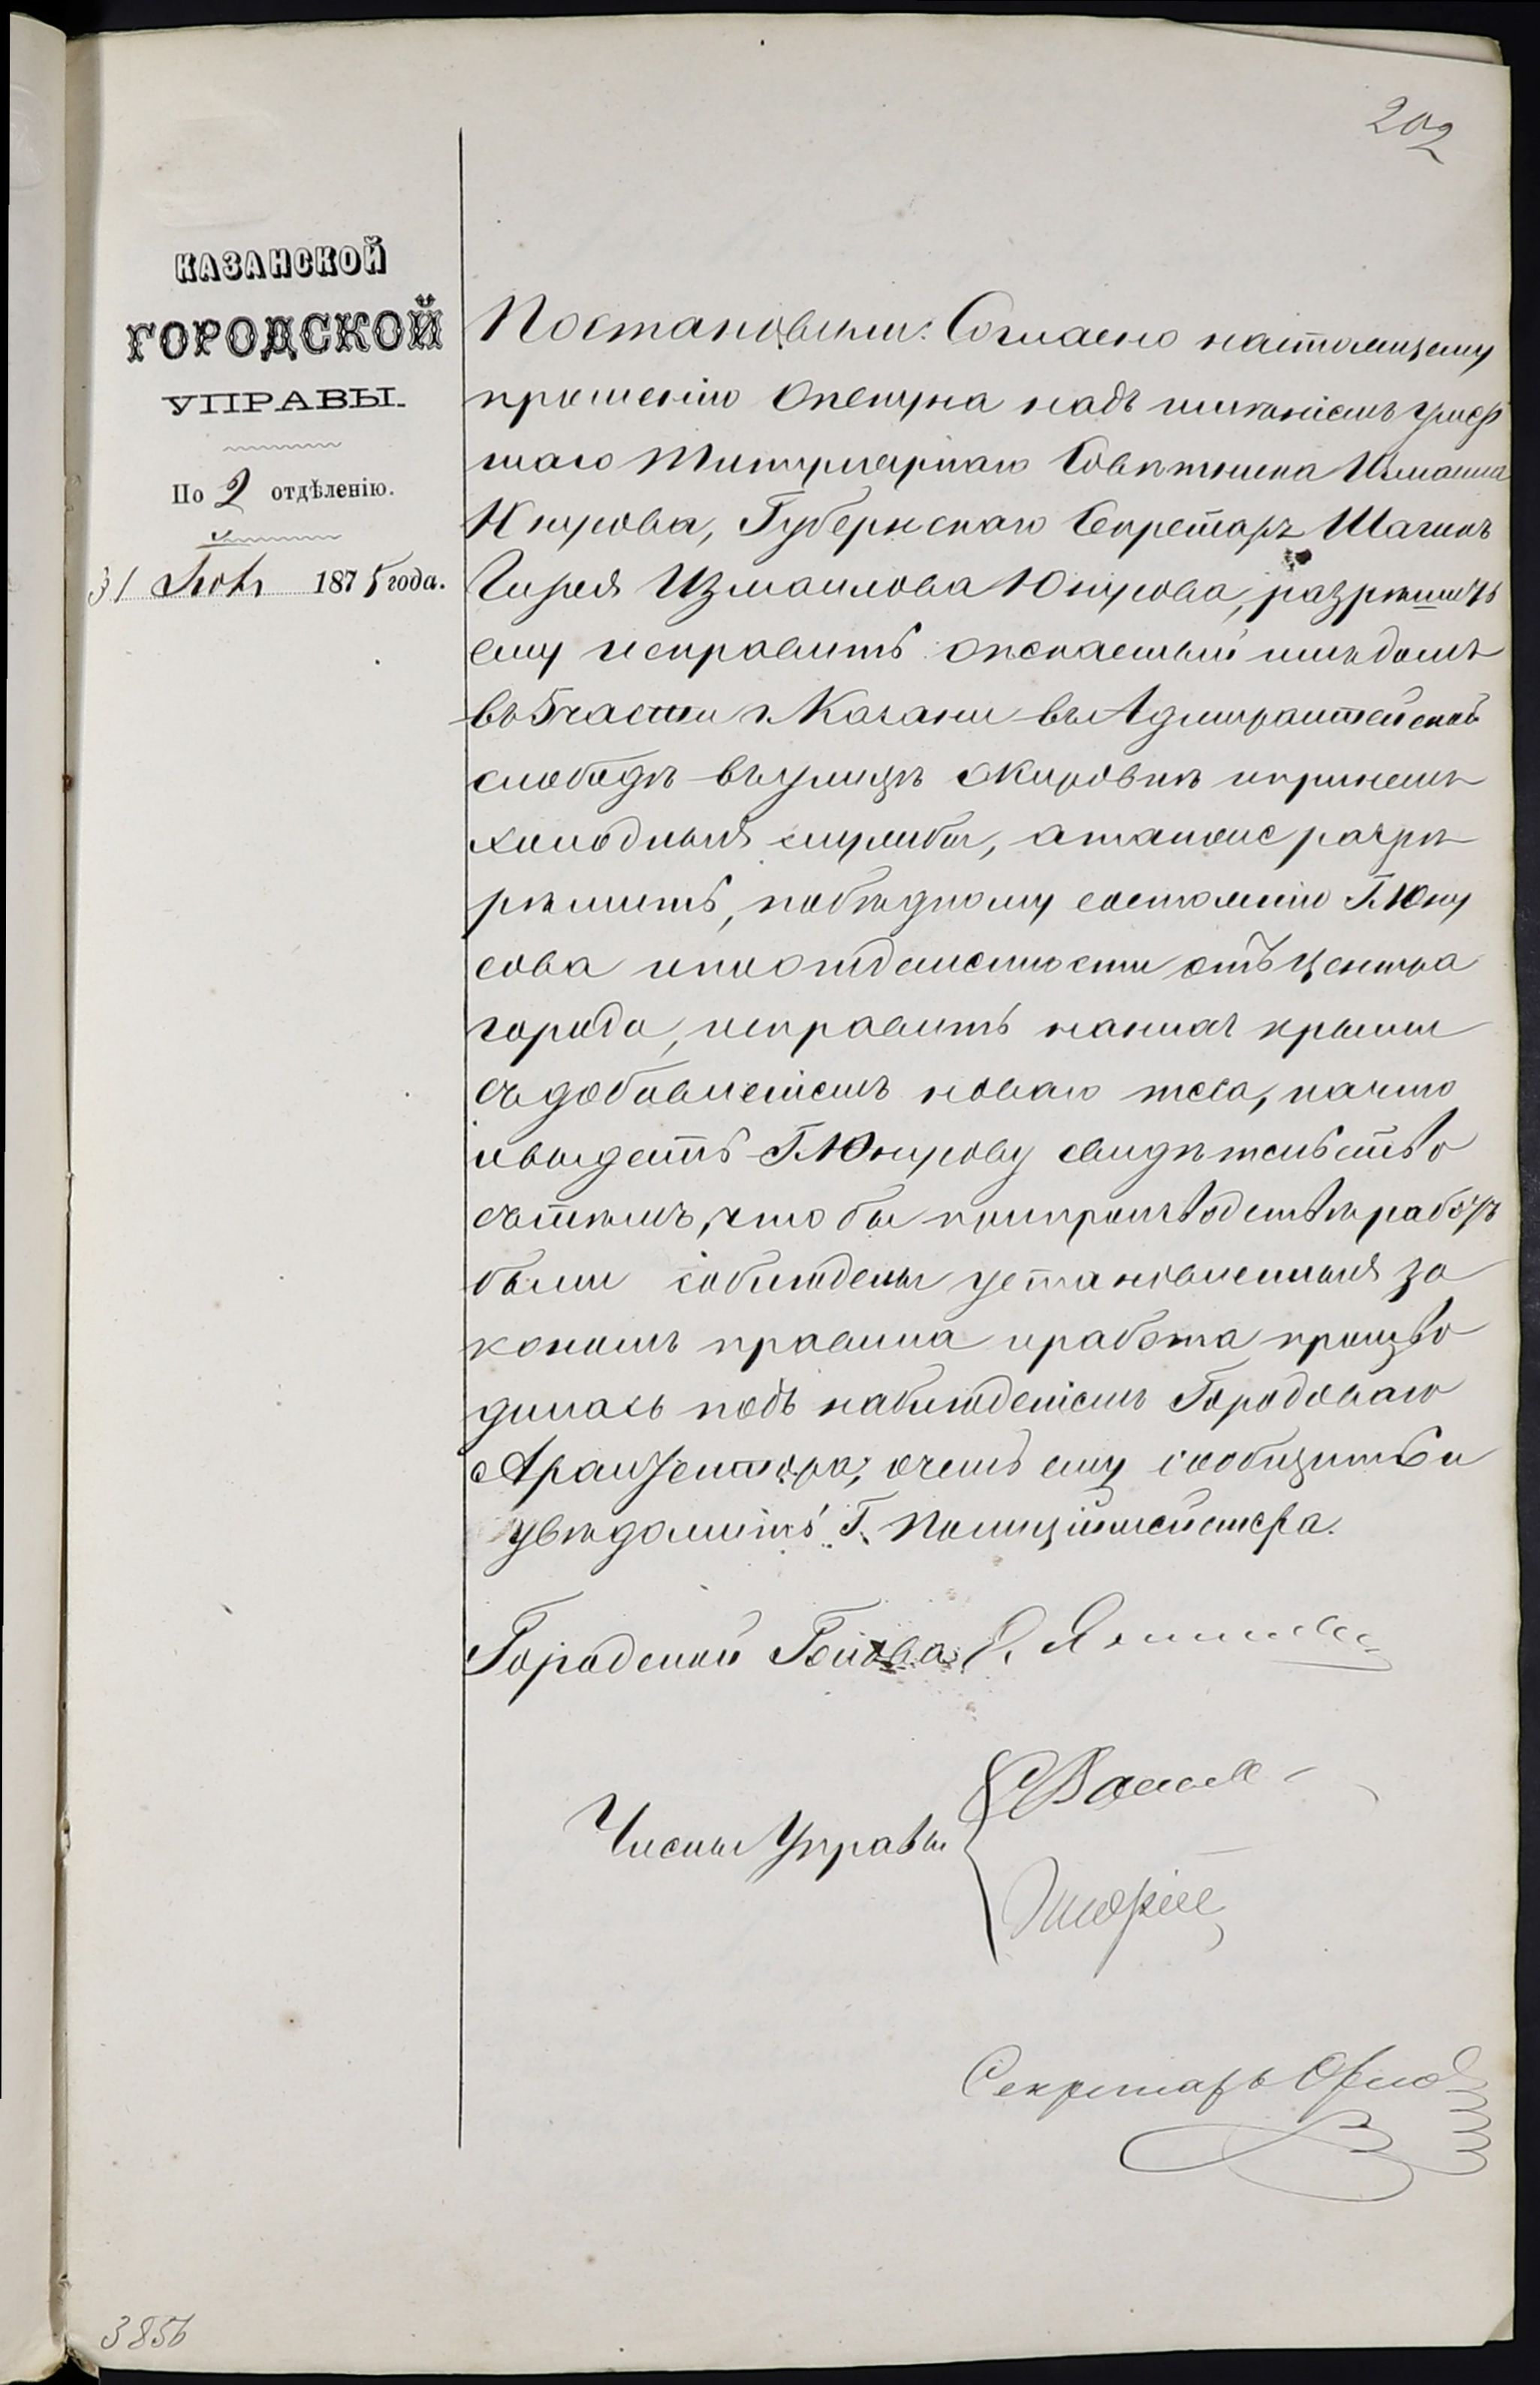 202
КАЗАНСКОЙ
ГОРОДСКОЙ
УПРАВЫ.
По 2 отдѣленію.
31 1875 года.
Постановили: Согласно настоящему
прошенію Опекуна надъ имѣніемъ умер
шаго Титулярнаго Совѣтника Измаила
Юнусова, Губернскаго Секретаря Шагинъ
Гирея Измаилова Юнусова, разрѣшить
ему исправить опекаемый имъ домъ
въ 5 части г. Казани въ Адмиралтейской
слободѣ въ улицѣ и при немъ
холодныя службы, а также разрѣ
рѣшить, по бѣдному состоянію Г. Юну
сова и по отдаленности отъ центра
города, исправить на них крыши
съ добавленіемъ новаго теса, на что
и выдать Г. Юнусову свидѣтельство
съ тѣмъ, что бы при производствѣ работъ
были соблюдены установленныя за
кономъ правила и работа произво
дилась подъ наблюденіемъ Городоваго
Архитектора, о чемъ ему сообщить и
увѣдомить Г. Полиціймейстера.
Городской Голова Э. Янишевс
Члены Управы
Секретарь
3856